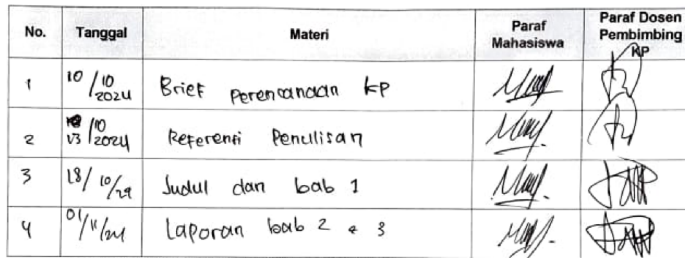 No. Tanggal Materi Paraf Mahasiswa Paraf Dosen Pembimbing KP
1 10/10 2024 Brief Perencanaan KP
2 13/10 2024 Referensi Penulisan
3 18/10/24 Judul dan bab 1
4 01/11/24 Laporan bab 2 & 3